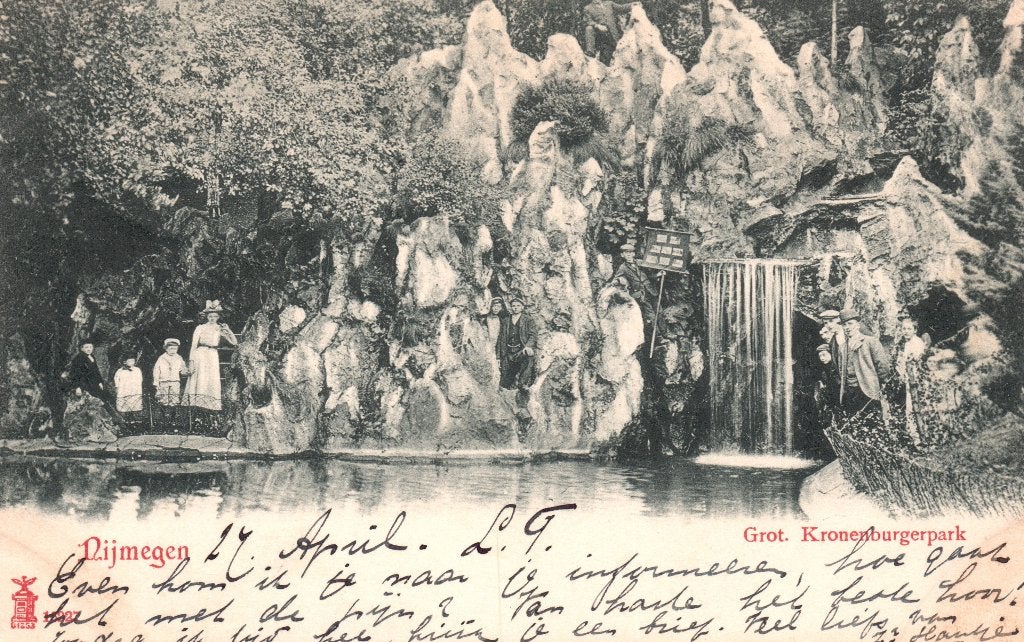 Nijmegen
27. April. L. T.
Grot. Kronenburgerpark
Even kom ik je naar je informeeren, hoe gaat
het met de pijn? Van harte het beste hoor!
ik bij het je een brief. Veel liefs van